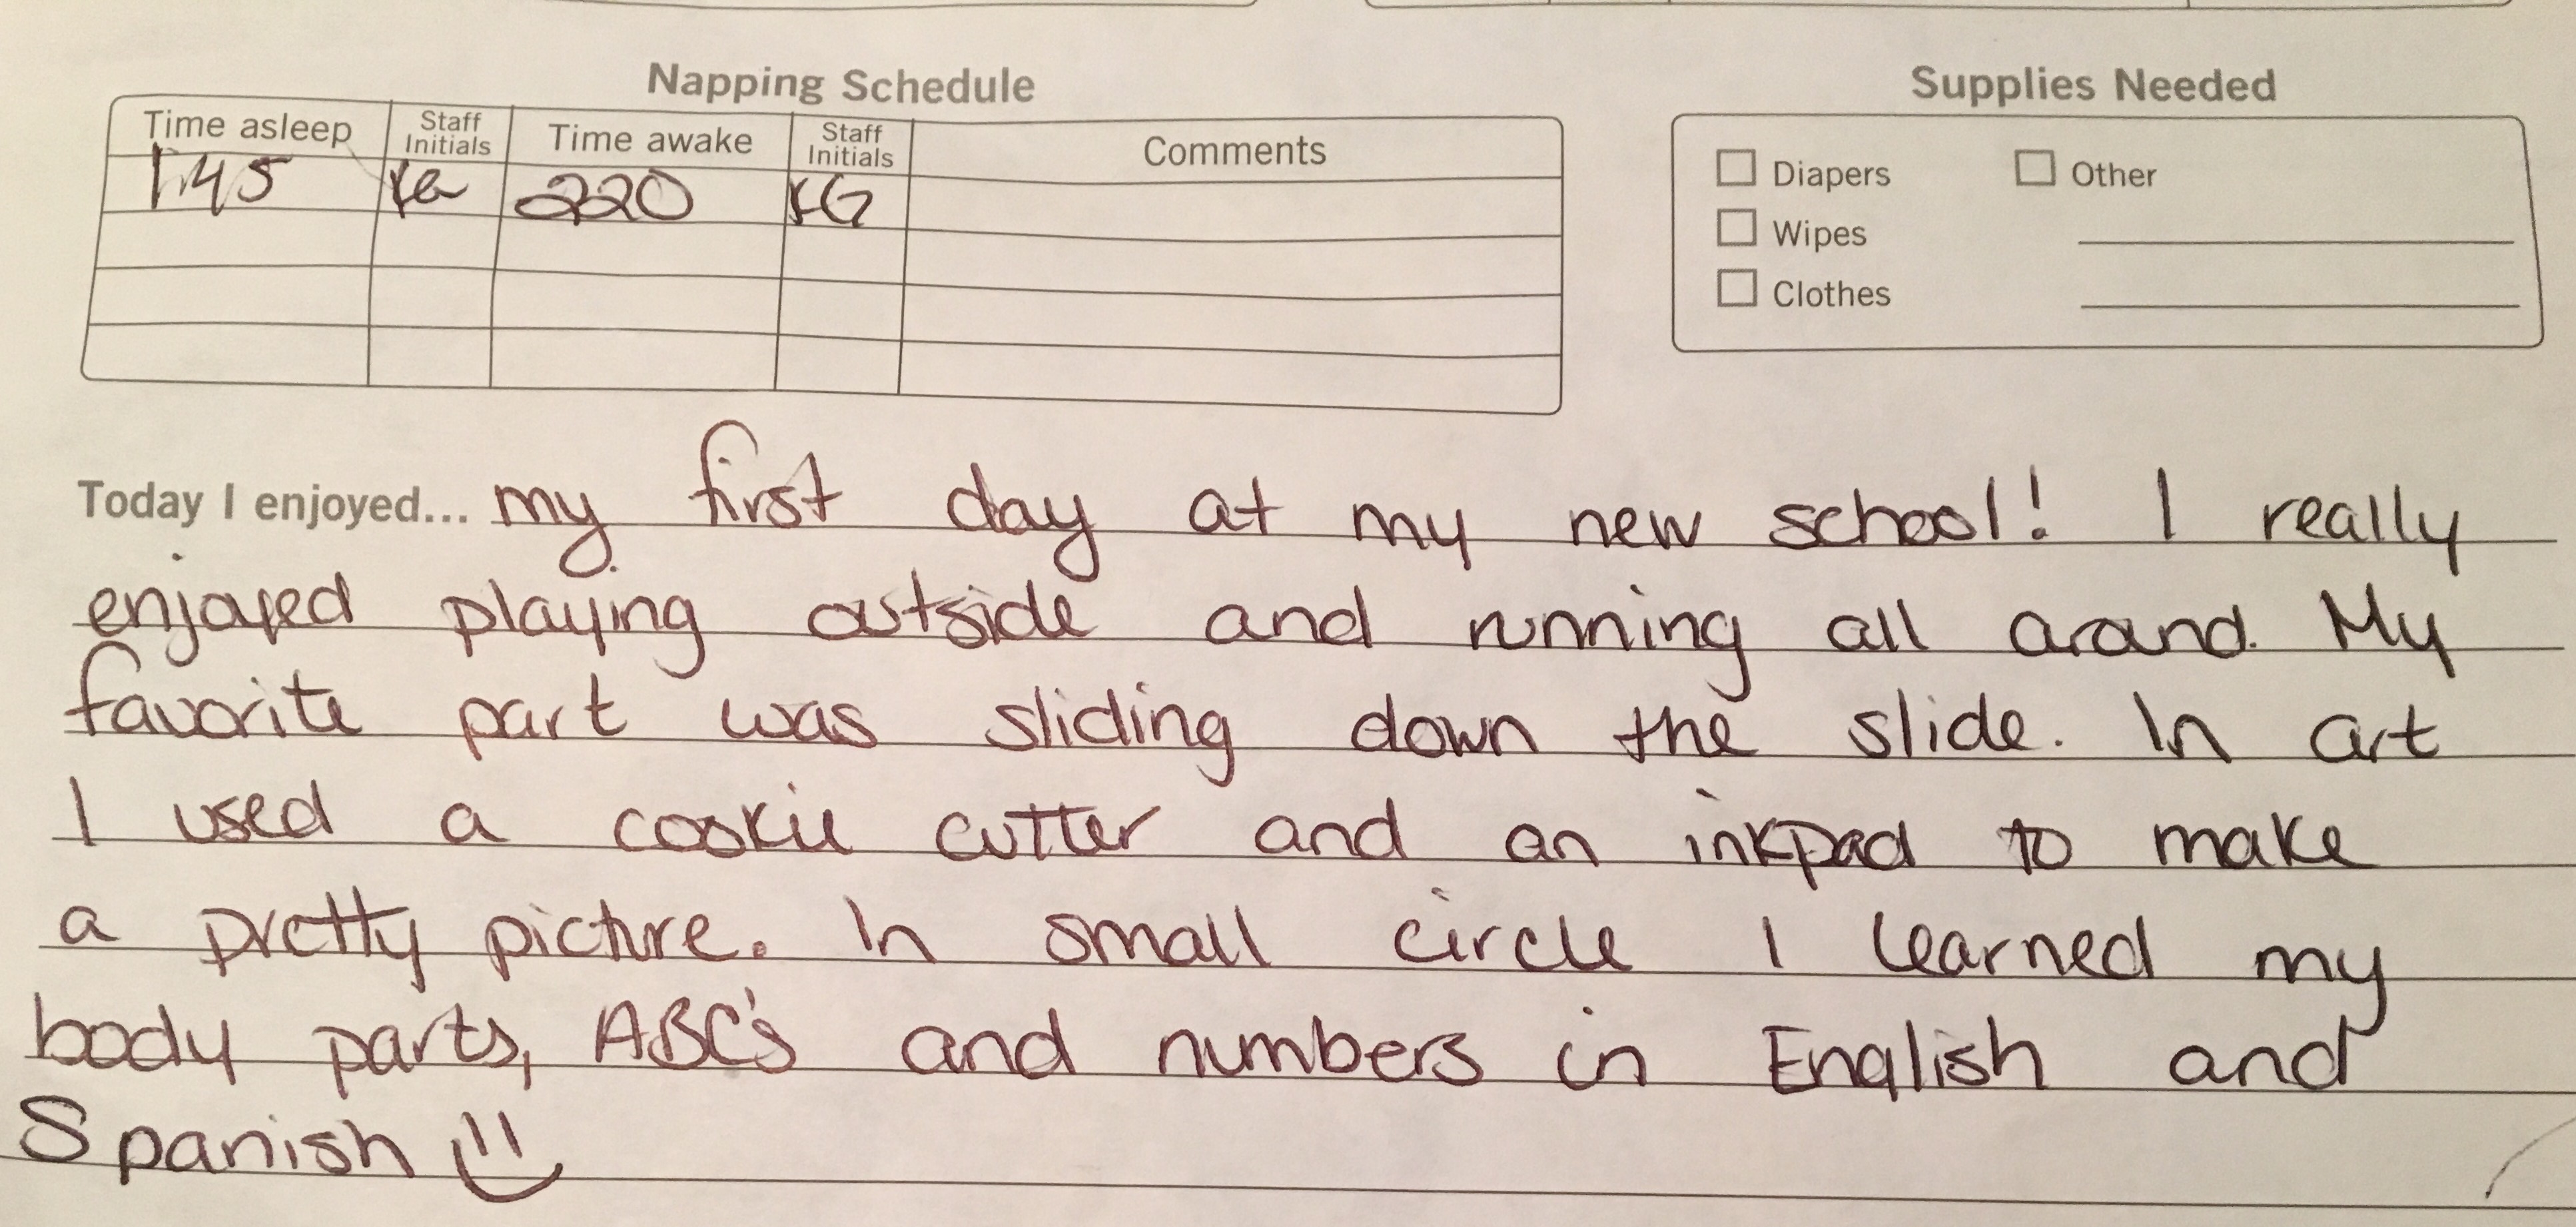 Napping Schedule
Time asleep Staff Initials Time awake Staff Initials Comments
1:45 KG 220 KG
Supplies Needed
Diapers Other
Wipes
Clothes
Today I enjoyed... my first day at my new school! I really
enjoyed playing outside and running all around. My
favorite part was sliding down the slide. In art
I used a cookie cutter and an inkpad to make
a pretty picture. In small circle I learned my
body parts, ABC's and numbers in English and
Spanish